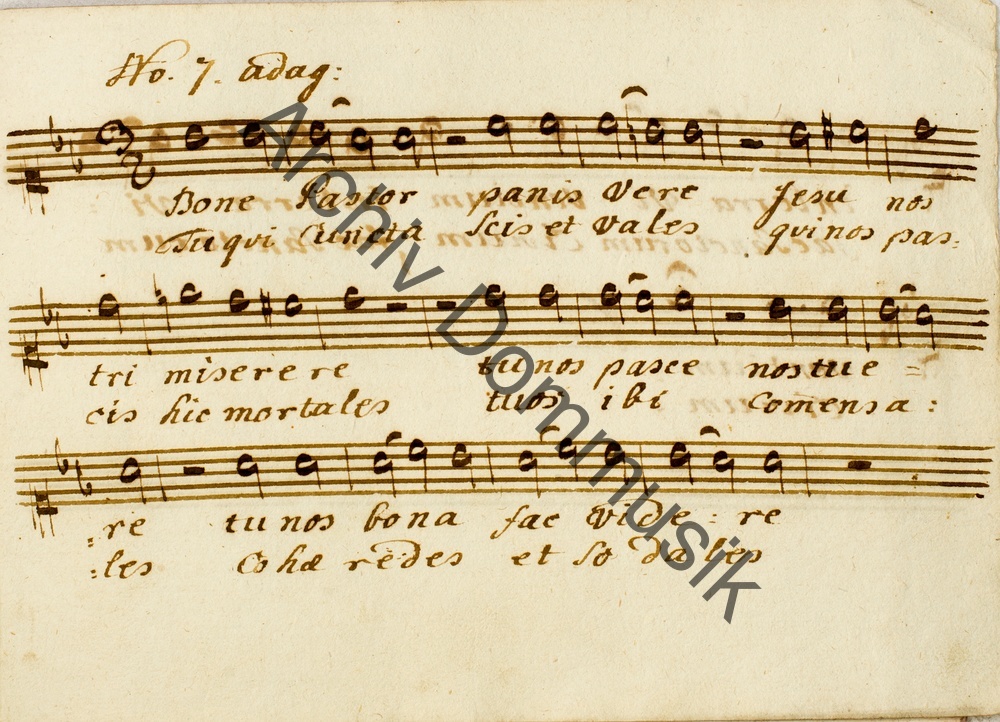 No. 7. adag:
Bone Pastor panis vere Jesu nos
Tu qui cuncta scis et vales qui nos pas:
tri miserere tu nos pasce nos tue =
cis hic mortales tuos ibi Com̄ensa:
:re tu nos bona fac vide:re
:les Cohæredes et sodales
Archiv Dommusik